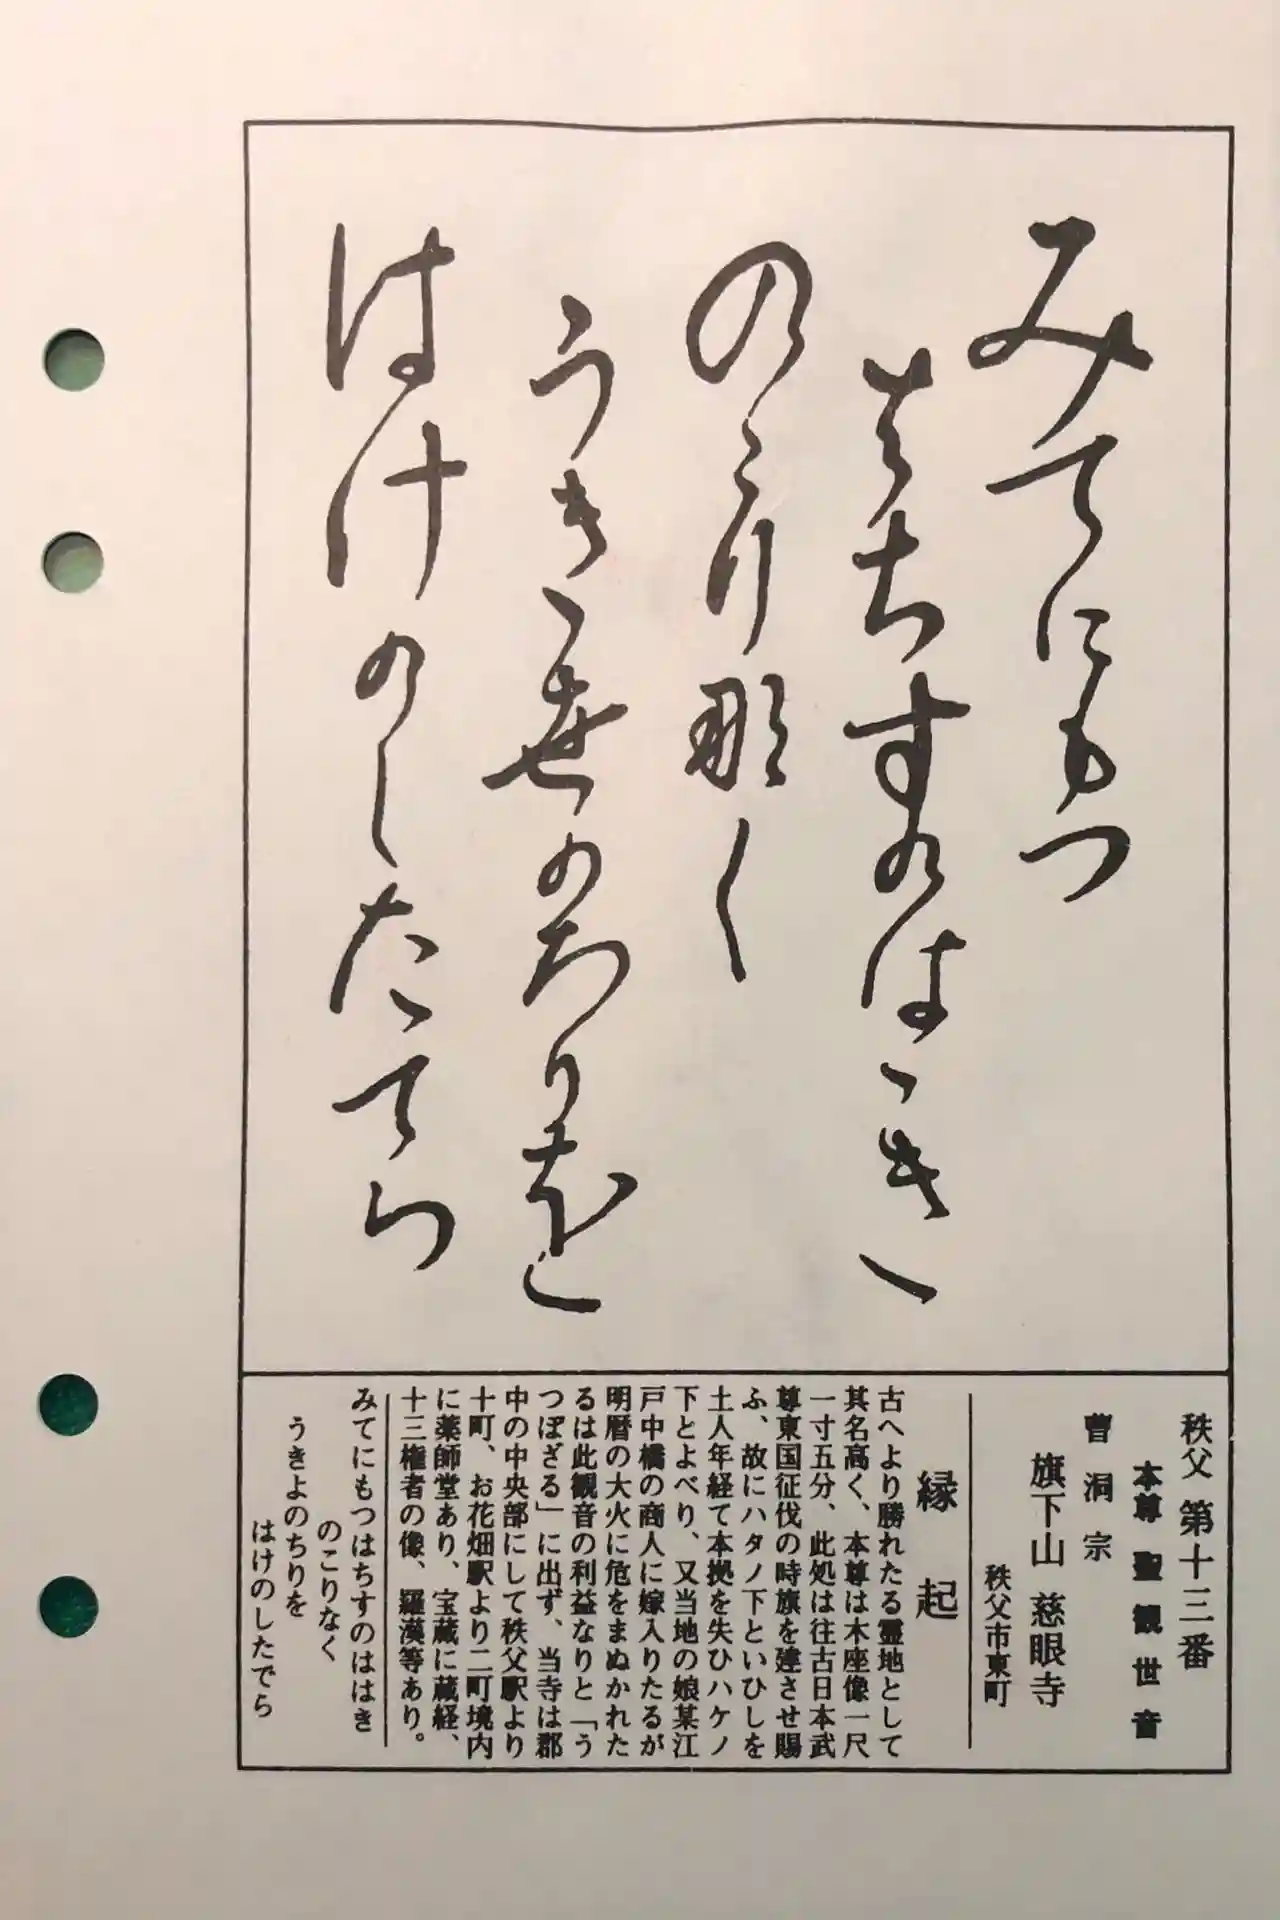 みてにもつ
はちすのはゝき
のこり那く
うき世のちりを
はけのしたてら
秩父 第十三番
本尊 聖観世音
曹洞宗
旗下山 慈眼寺
秩父市東町
縁起
古へより勝れたる霊地として
其名高く、本尊は木座像一尺
一寸五分、此処は往古日本武
尊東国征伐の時旗を建させ賜
ふ、故にハタノ下といひしを
土人年経て本拠を失ひハケノ
下とよべり、又当地の娘某江
戸中橋の商人に嫁入りたるが
明暦の大火に危をまぬかれた
るは此観音の利益なりと「う
つぽざる」に出ず、当寺は郡
中の中央部にして秩父駅より
十町、お花畑駅より二町境内
に薬師堂あり、宝蔵に蔵経、
十三権者の像、羅漢等あり。
みてにもつはちすのははき
のこりなく
うきよのちりを
はけのしたでら